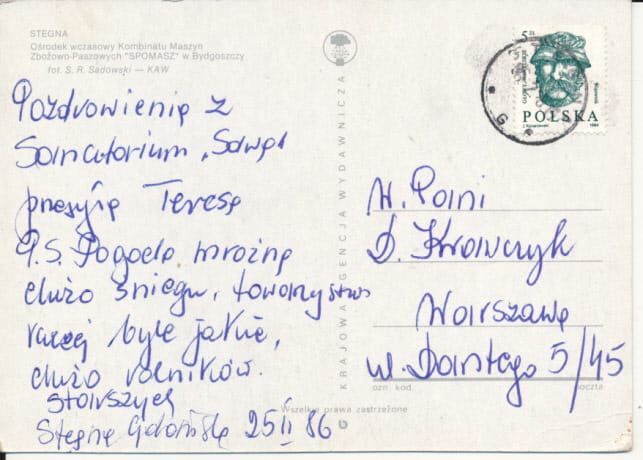 STEGNA
Ośrodek wczasowy Kombinatu Maszyn
Zbożowo-Paszowych "SPOMASZ" w Bydgoszczy
fot. S. R. Sadowski — KAW
Pozdrowienia z
Sanatorium
przesyła Teresa
P.S. Pogoda mroźna
dużo śniegu, towarzystwo
raczej byle jakie,
dużo rolników.
starszych
Stegna Gdańska 25 II 86
KRAJOWA AGENCJA WYDAWNICZA
5 ZŁ
POLSKA
1984
W. Pani
D. Krawczyk
Warszawa
ul. Dantego 5/45
ozn kod
poczta
Wszelkie prawa zastrzeżone